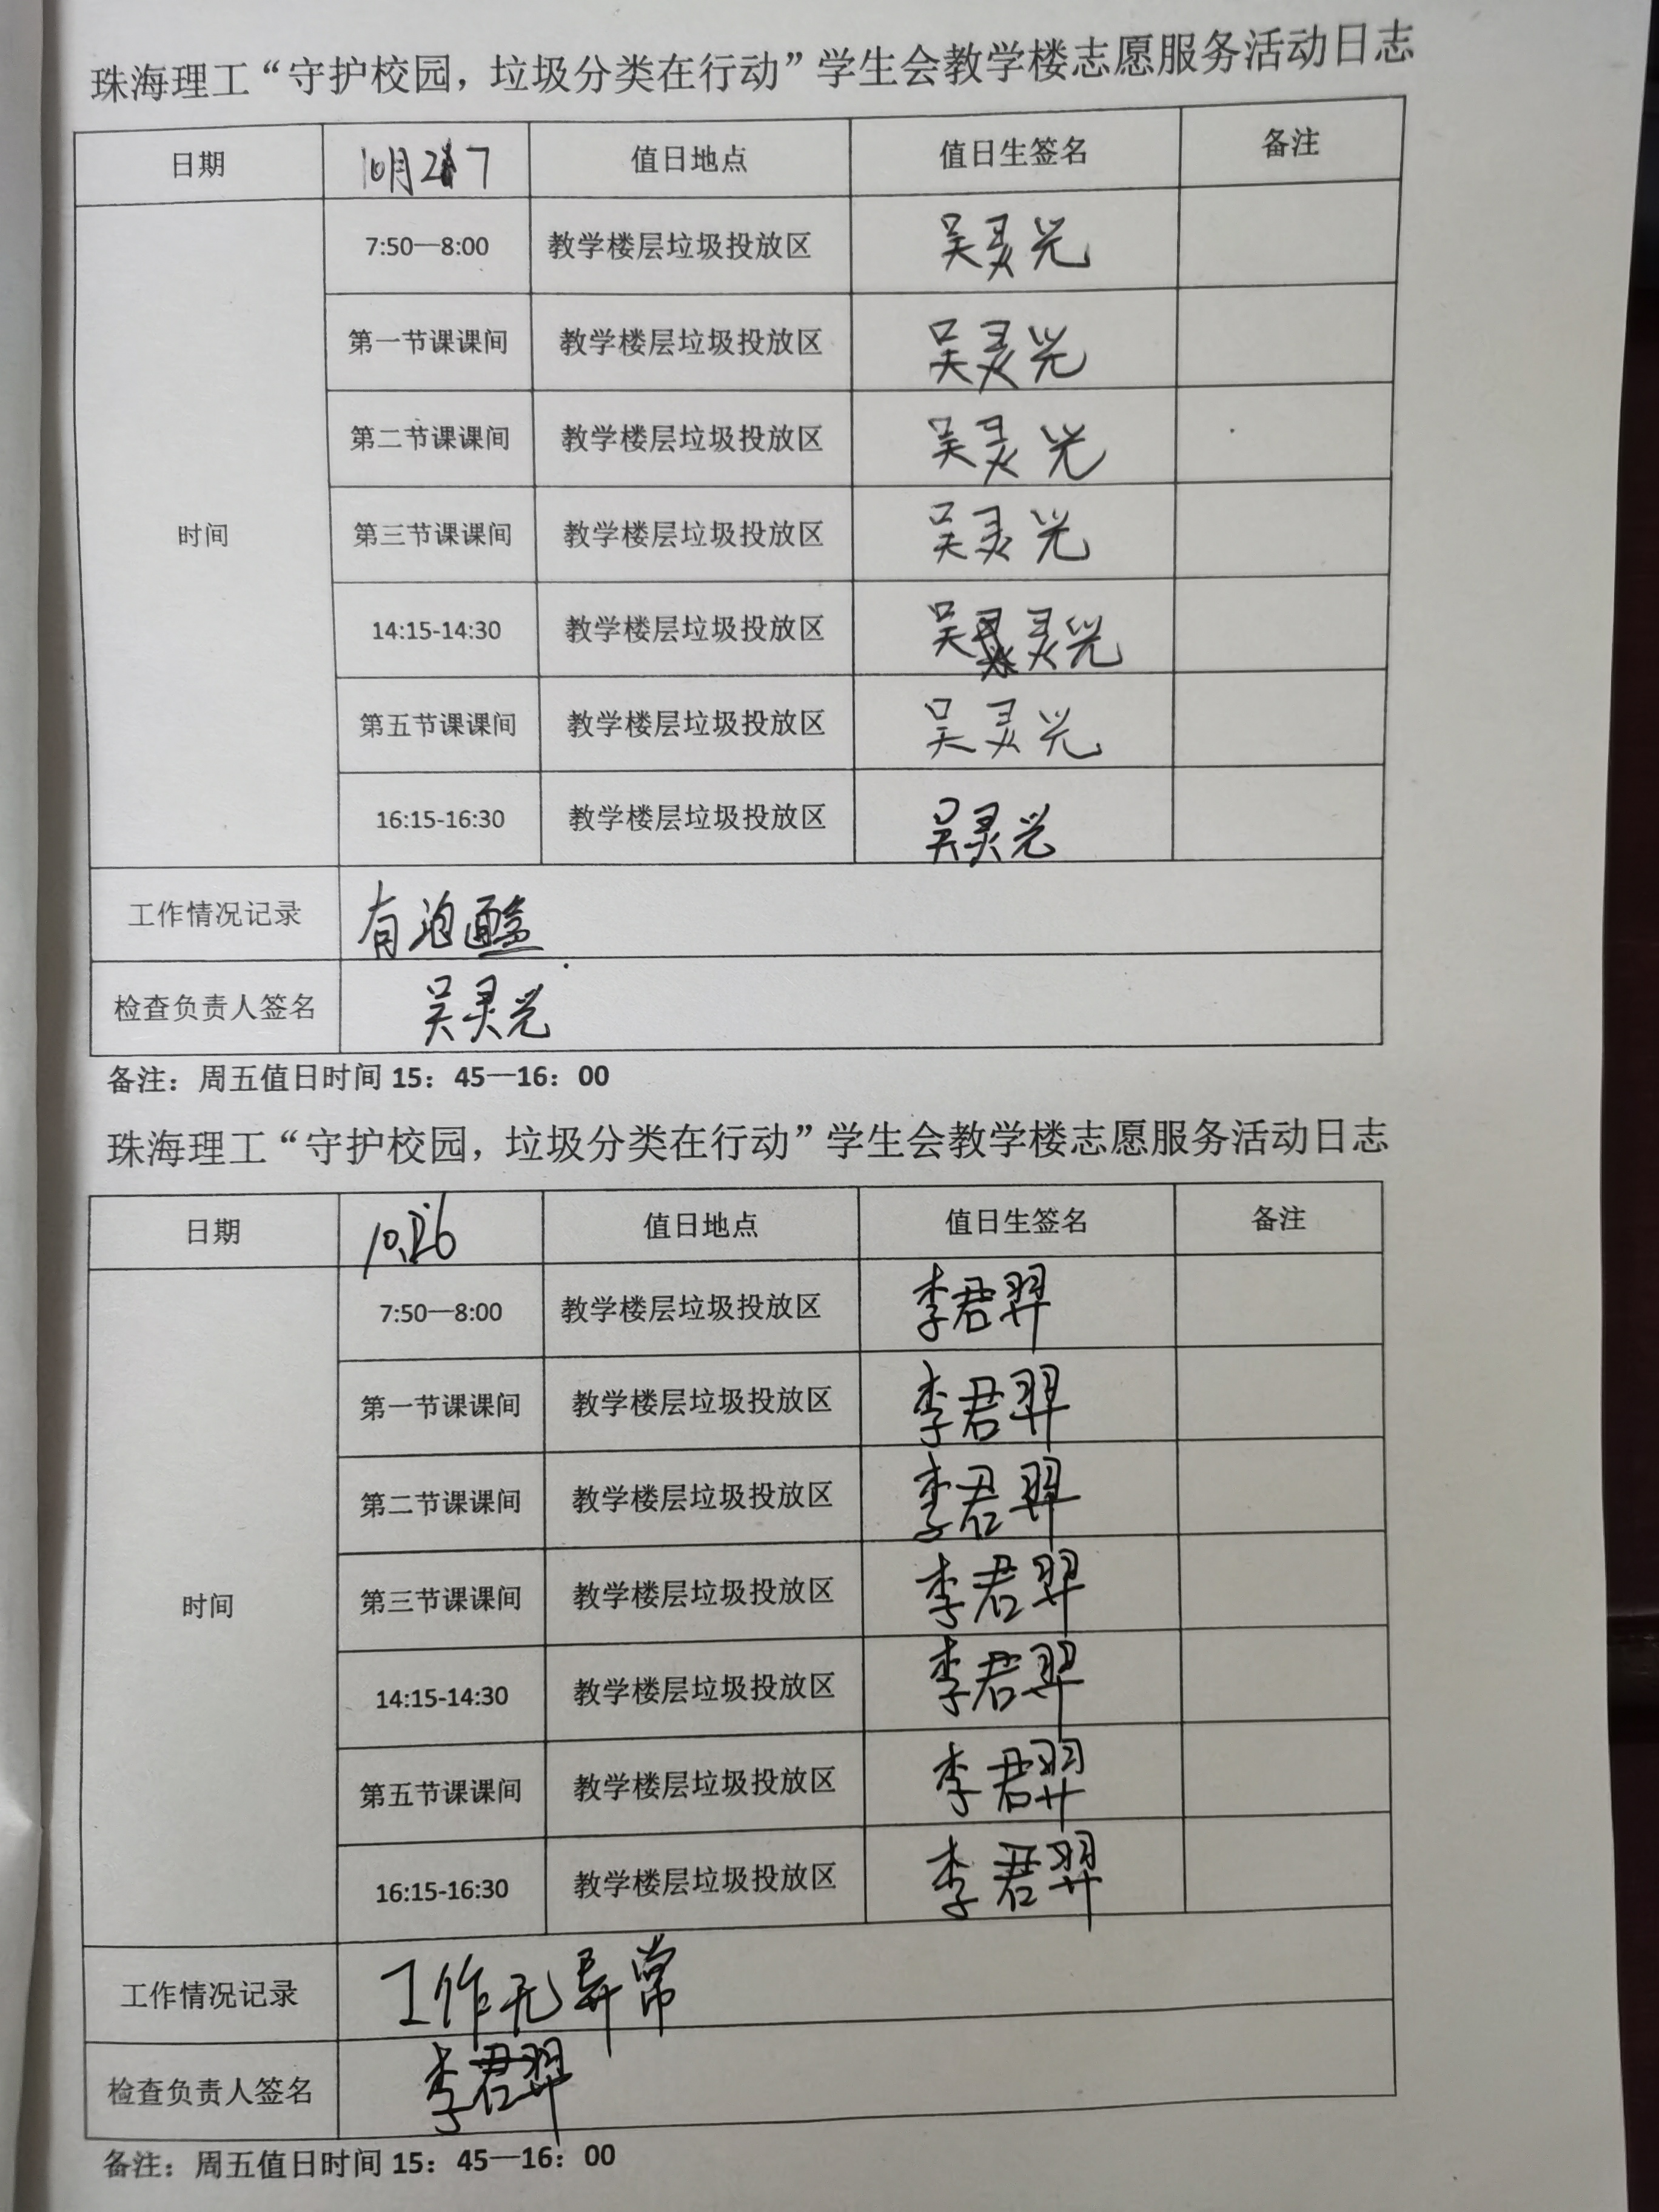 珠海理工“守护校园，垃圾分类在行动”学生会教学楼志愿服务活动日志
日期 10月27 值日地点 值日生签名 备注
7:50—8:00 教学楼层垃圾投放区 吴灵光
第一节课课间 教学楼层垃圾投放区 吴灵光
第二节课课间 教学楼层垃圾投放区 吴灵光
时间 第三节课课间 教学楼层垃圾投放区 吴灵光
14:15-14:30 教学楼层垃圾投放区 吴灵光
第五节课课间 教学楼层垃圾投放区 吴灵光
16:15-16:30 教学楼层垃圾投放区 吴灵光
工作情况记录 有泡
检查负责人签名 吴灵光
备注：周五值日时间 15：45—16：00
珠海理工“守护校园，垃圾分类在行动”学生会教学楼志愿服务活动日志
日期 值日地点 值日生签名 备注
7:50—8:00 教学楼层垃圾投放区 李君羿
第一节课课间 教学楼层垃圾投放区 李君羿
第二节课课间 教学楼层垃圾投放区 李君羿
时间 第三节课课间 教学楼层垃圾投放区 李君羿
14:15-14:30 教学楼层垃圾投放区 李君羿
第五节课课间 教学楼层垃圾投放区 李君羿
16:15-16:30 教学楼层垃圾投放区 李君羿
工作情况记录 工作无异常
检查负责人签名 李君羿
备注：周五值日时间 15：45—16：00